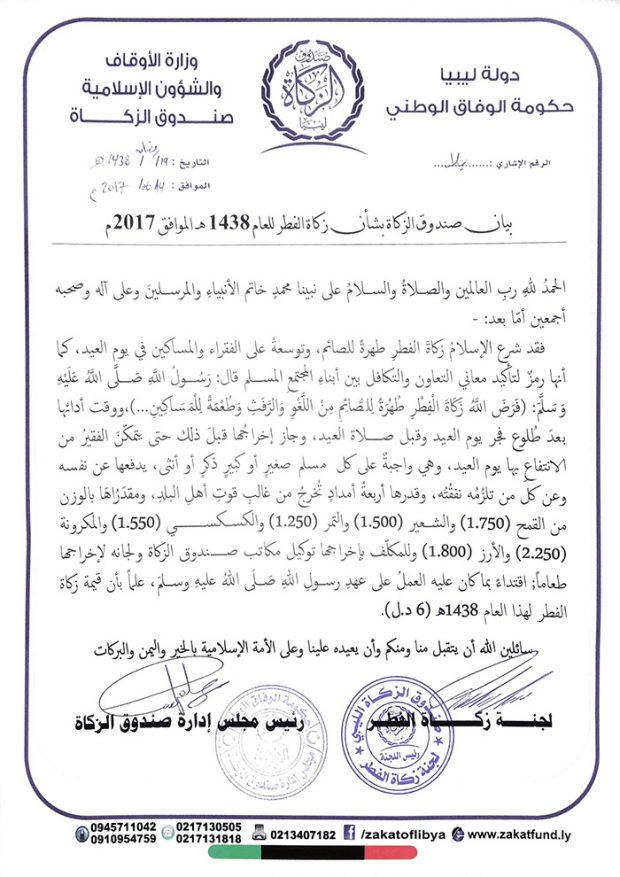 دولة ليبيا
حكومة الوفاق الوطني
صندوق
الزكاة
ليبيا
وزارة الأوقاف
والشؤون الإسلامية
صندوق الزكاة
الرقم الإشاري :.......
التاريخ : 19 / رمضان / 1438 هـ
الموافق : 14 / 06 / 2017 م
بيان صندوق الزكاة بشأن زكاة الفطر للعام 1438 هـ الموافق 2017 م
الحمدُ للهِ ربِ العالمين والصلاةُ والسلامُ على نبينا محمدٍ خاتم الأنبياءِ والمرسلينَ وعلى آله وصحبه
أجمعين أمّا بعد: -
فقد شرع الإسلامُ زكاةَ الفطرِ طهرةً للصائم، وتوسعةً على الفقراء والمساكين في يوم العيد، كما
أنها رمزٌ لتأكيد معاني التعاون والتكافل بين أبناءِ المجتمع المسلم قال: رَسُولُ اللَّهِ صَلَّى اللَّهُ عَلَيْهِ
وَسَلَّمَ: (فَرَضَ اللَّهُ زَكَاةَ الْفِطْرِ طُهْرَةً لِلصَّائِمِ مِنْ اللَّغْوِ وَالرَّفَثِ وَطُعْمَةً لِلْمَسَاكِينِ...)،ووقت أدائها
بعدَ طُلوع فجر يوم العيد وقبل صلاة العيد، وجاز إخراجُها قبلَ ذلك حتى يتمكّنَ الفقيرُ من
الانتفاع بها يوم العيد، وهي واجبةٌ على كل مسلم صغيرٍ أو كبيرٍ ذكرٍ أو أنثى، يدفعها عن نفسه
وعن كل من تلزمُه نفقتُه، وقدرها أربعةُ أمدادٍ تُخرجُ من غالبِ قوتِ أهلِ البلدِ، ومقدَرُاهَا بالوزن
من القمح (1.750) والشعير (1.500) والتمر (1.250) والكسكسي (1.550) والمكرونة
(2.250) والأرز (1.800) وللمكلّف بإخراجها توكيل مكاتب صندوق الزكاة ولجانه لإخراجها
طعاماً; اقتداءً بماكان عليه العملُ على عهدِ رسولِ اللهِ صَلَى اللهُ عليهِ وسلمَ، علماً بأن قيمة زكاة
الفطر لهذا العام 1438هـ (6 د.ل).
سائلين الله أن يتقبل منا ومنكم وأن يعيده علينا وعلى الأمة الإسلامية بالخير واليمن والبركات
لجنة زكاة الفطر
رئيس مجلس إدارة صندوق الزكاة
صندوق الزكاة الليبي
رئيس اللجنة
لجنة زكاة الفطر
0945711042
0910954759
0217130505
0217131818
0213407182
/zakatoflibya
www.zakatfund.ly